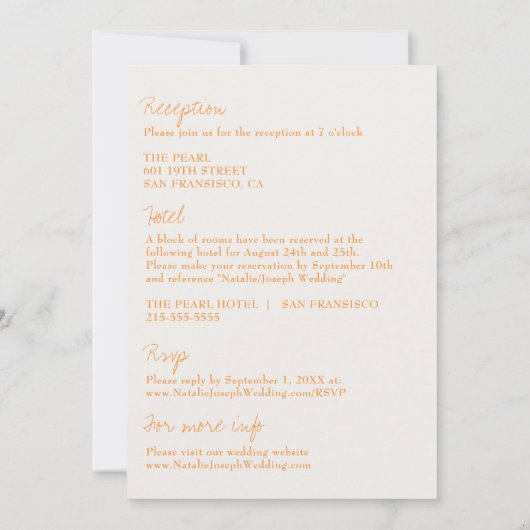 Reception
Please join us for the reception at 7 o'clock
THE PEARL
601 19TH STREET
SAN FRANSISCO, CA
Hotel
A block of rooms have been reserved at the
following hotel for August 24th and 25th.
Please make your reservation by September 10th
and reference "Natalie/Joseph Wedding"
THE PEARL HOTEL | SAN FRANSISCO
215-555-5555
Rsvp
Please reply by September 1, 20XX at:
www.NatalieJosephWedding.com/RSVP
For more info
Please visit our wedding website
www.NatalieJosephWedding.com